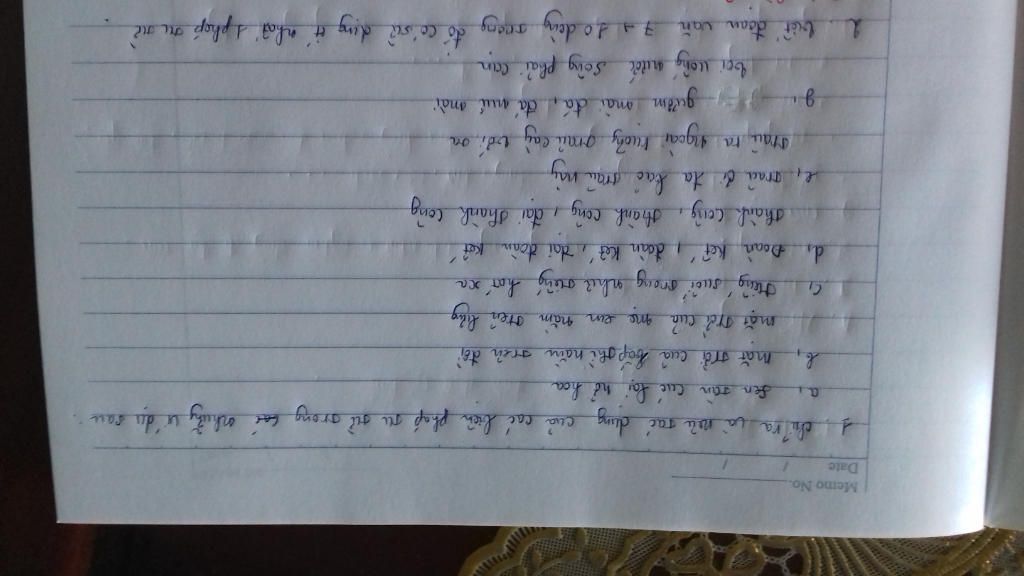 Memo No.
Date / /
1. chỉ ra và nêu tác dụng của các biện pháp tu từ trong những ví dụ sau
a, sen tàn cúc lại nở hoa
b, mặt trời của bắp thì nằm trên đồi
mặt trời của mẹ em nằm trên lưng
c, tiếng suối trong như tiếng hát xa
d, Đoàn kết, đoàn kết, đại đoàn kết
thành công, thành công, đại thành công
e, trâu ơi ta bảo trâu này
trâu ra ngoài ruộng trâu cày với ta
g, gươm mài đá, đá núi mòn
voi uống nước sông phải cạn
2. viết đoạn văn 7 → 10 dòng trong đó có sử dụng ít nhất 1 phép tu từ